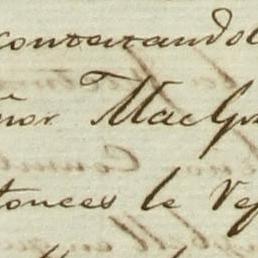 contestandol
ñor MacGr
tonces le